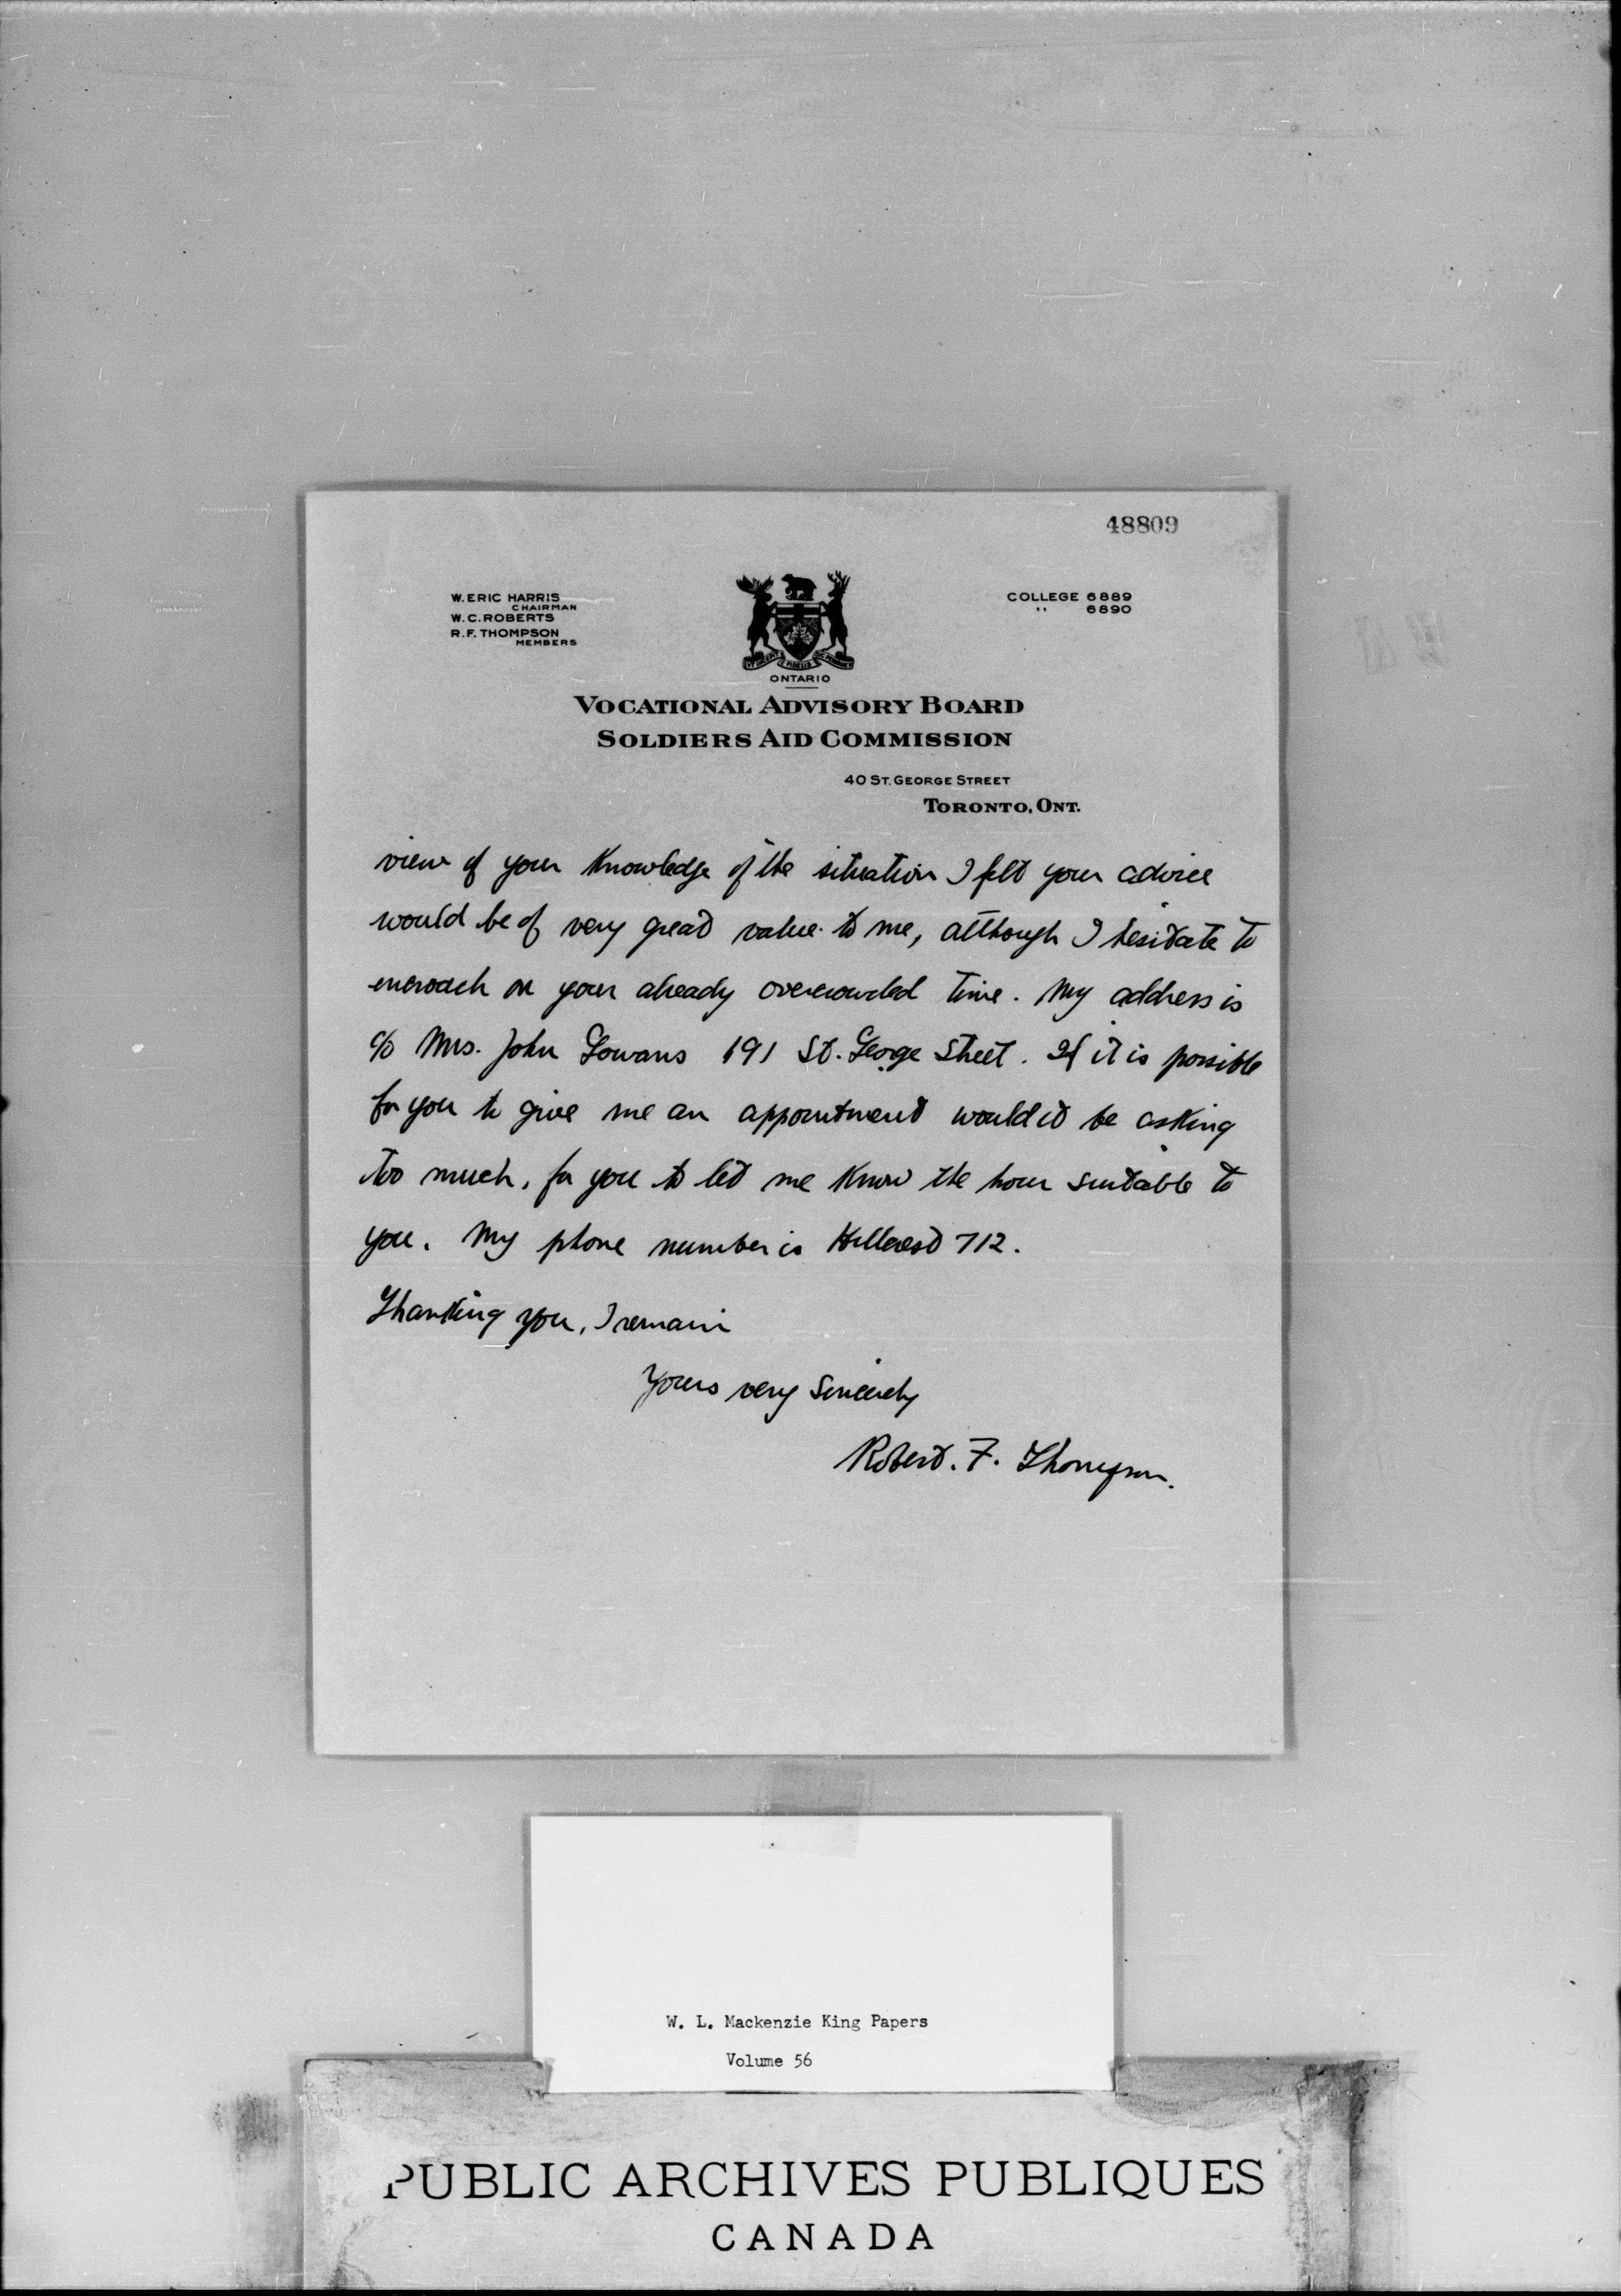 48809
W. ERIC HARRIS
CHAIRMAN
W. C. ROBERTS
R. F. THOMPSON
MEMBERS
COLLEGE 6889
" 6890
ONTARIO
VOCATIONAL ADVISORY BOARD
SOLDIERS AID COMMISSION
40 ST. GEORGE STREET
TORONTO, ONT.
view of your knowledge of the situation I felt your advice
would be of very great value to me, although I hesitate to
encroach on your already overcrowded time. My address is
c/o Mrs. John Gowans 191 St. George Street. If it is possible
for you to give me an appointment would it be asking
too much, for you to let me know the hour suitable to
you. My phone number is Hillcrest 712.
Thanking you, I remain
Yours very Sincerely
Robert. F. Thompson.
W. L. Mackenzie King Papers
Volume 56
PUBLIC ARCHIVES PUBLIQUES
CANADA